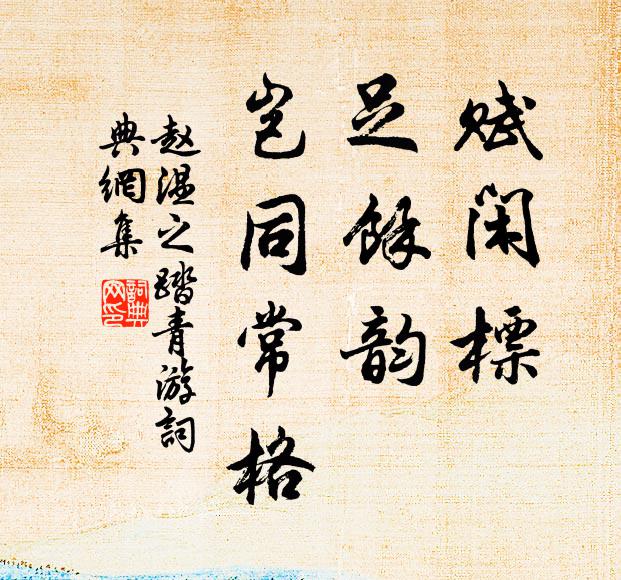 赋闲標
足餘韵
岂同常格
赵温之踏青游詞
典網集
詞典网印